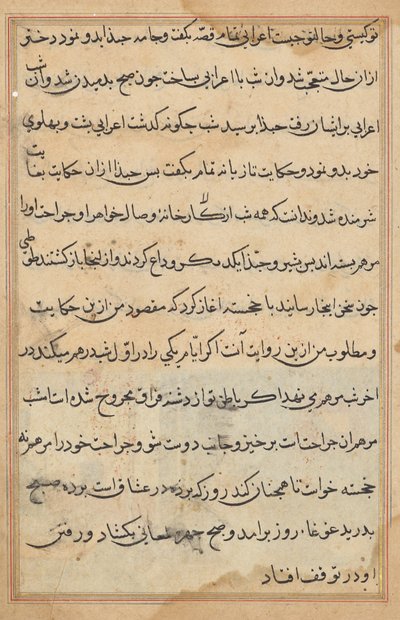 تو کیستی و حال تو چیست اعرابی تمام قصه بکفت و جامه جبذا بدو نمود دختر
ازان حال متعجب شد وان شب با اعرابی ساخت چون صبح بدمیدن شد وان شب
اعرابی برایشان رفت جبذا پرسید شب چکونه کذشت اعرابی پشت و پهلوی
خود بدو نمود و حکایت تازیانه تمام بکفت پس جبذا ازان حکایت بغایت
شرمنده شد ودانست که همه شب از کار خانۀ وصال خواهر او جراحت او را
مرهم بسته اند بشیر و جبذا یکدیکر وداع کردند و از انجا بازکشتند طوطی
چون سخن اینجا رسانید با خجسته آغاز کرد که مقصود من ازین حکایت
و مطلوب من ازین روایت آنست اکر ایام یکی را در اول شب درهم میکند در
اخر شب مرهمی نهد اکر باطن تو از دشنه فراق مجروح شده است امشب
مرهم ان جراحت است برخیز و جانب دوست شو و جراحت خود را مرهم نه
خجسته خواست تا همچنان کند روز که پرده در عشاق است پرده صبح
بدرید غوغاء روز برامد و صبح چهره لمعانی بکشاد و رفتن
او در توقف افتاد